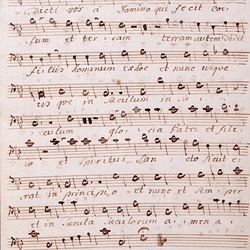 dicti vos a Domino qui fecit coe
lum et ter ram terram autem dedit
filiis hominum ex hoc et nunc usque
usque in saeculum in sae
culum glo ria Patri et fili
o et Spiritui San cto sicut e
rat in principio et nunc et sem per
et in saecula saeculorum a men a